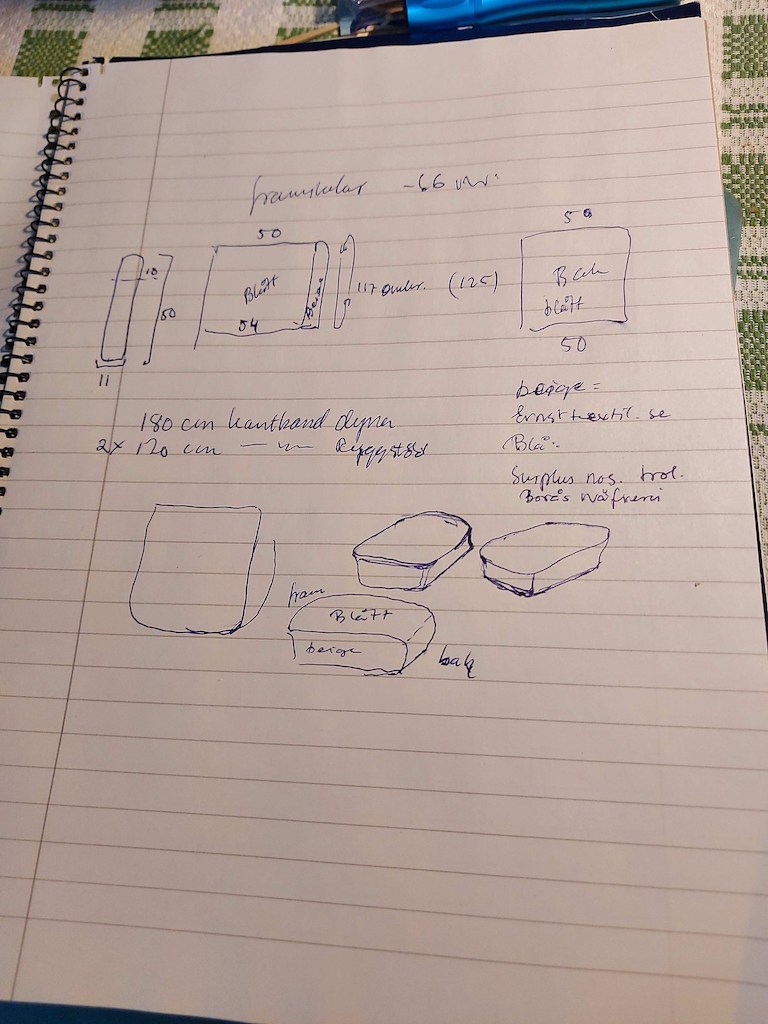 framstolar -66 vw:
50
10
50
11
Blått
54
Beige
117 omkr. (125)
50
Bak
blått
50
beige =
Ernst textil.se
Blå:
Surplus nos. trol.
Borås wäfveri
180 cm kantband dynor
2x 120 cm —"— Ryggstöd
fram
Blått
beige
bak